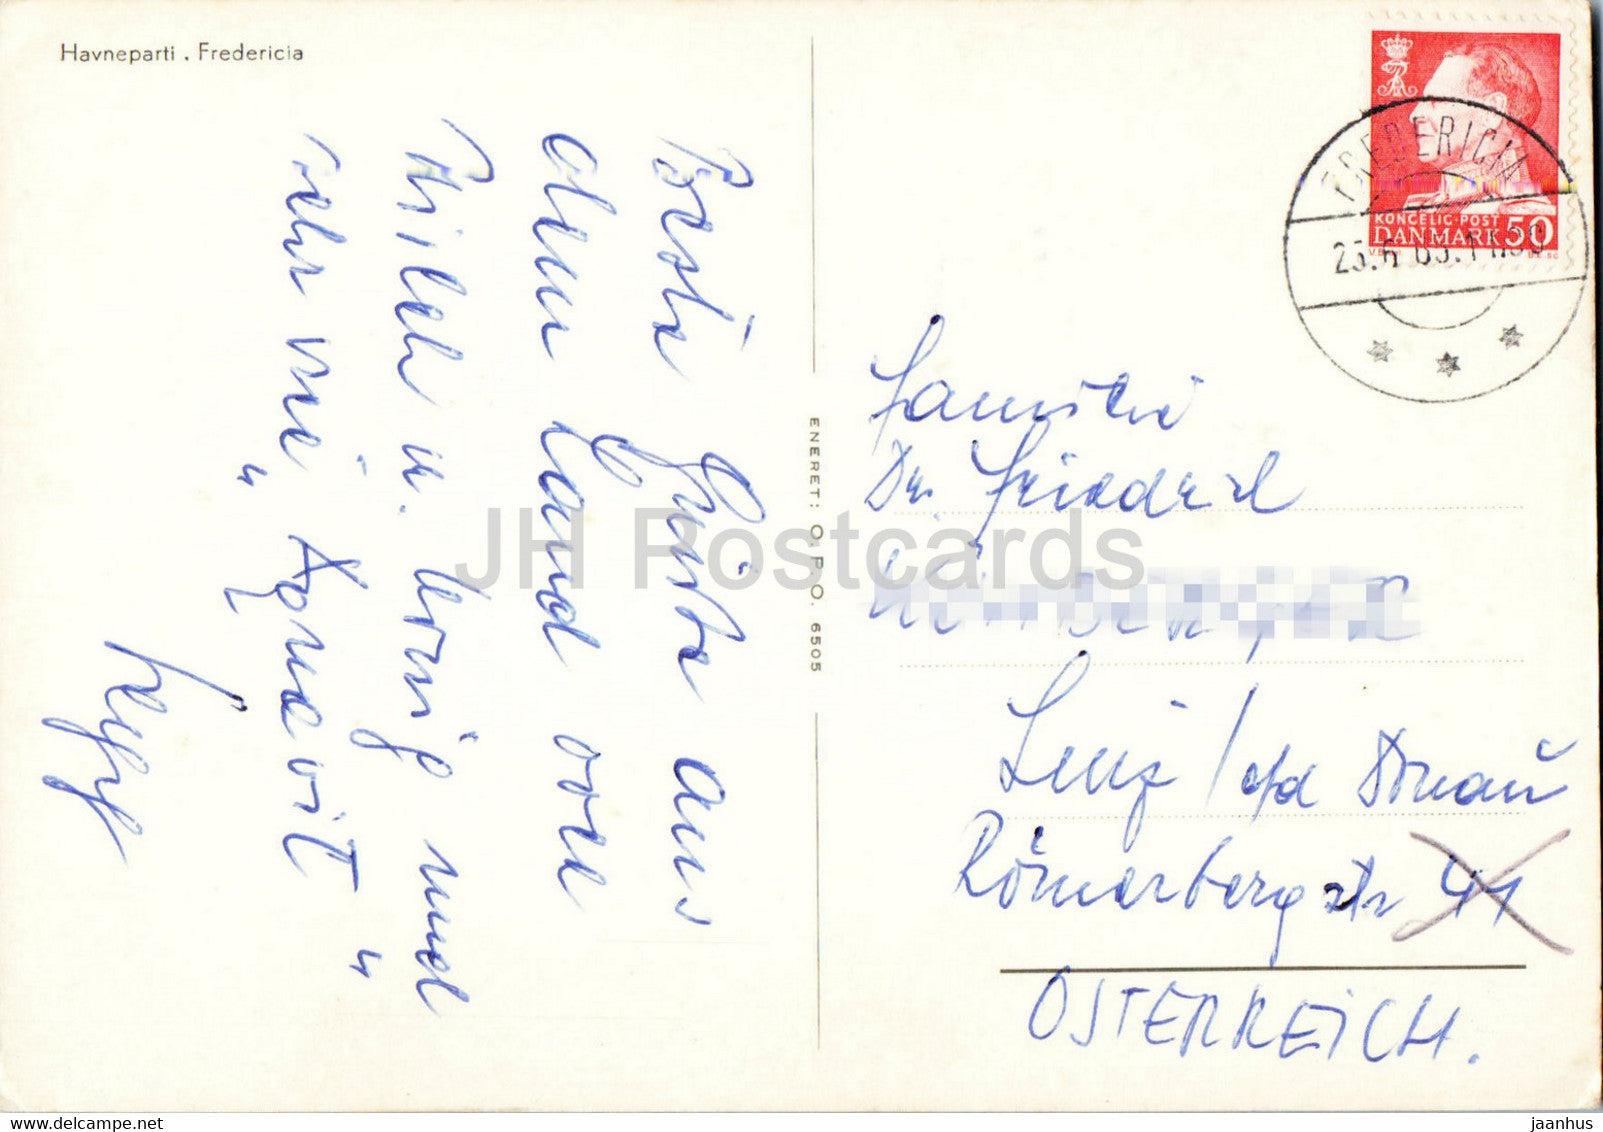 Havneparti . Fredericia
Beste Grüße aus
dem Land wo
Milch u. Honig und
sehr viel "Aquavit"
ENERET: O.P.O. 6505
KONGELIG POST
DANMARK 50
FREDERICIA
Familie
Dr. Friedrich
Linz / a/d Donau
Römerbergstr 41
ÖSTERREICH.
JH Postcards
www.delcampe.net
jaanhus